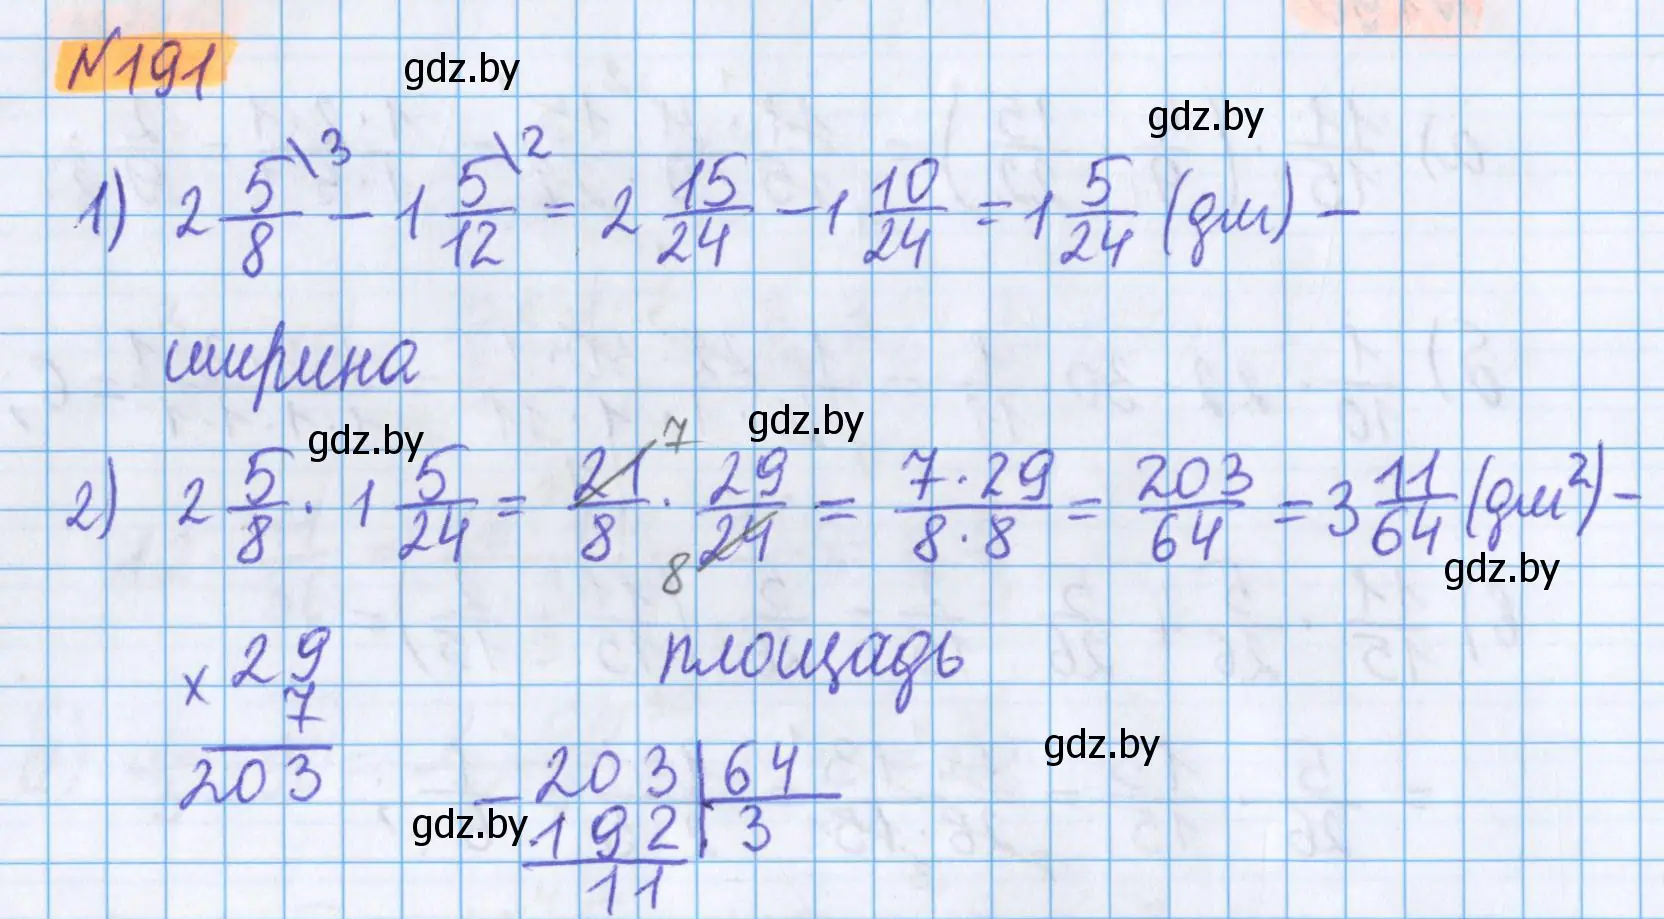 №191
gdz.by
gdz.by
1) 2 5/8\3 − 1 5/12\2 = 2 15/24 − 1 10/24 = 1 5/24 (дм) −
ширина
gdz.by
gdz.by
2) 2 5/8 · 1 5/24 = 21/8 · 29/24 = 7·29/8·8 = 203/64 = 3 11/64 (дм²) −
7
8
gdz.by
площадь
× 29
7
203
gdz.by
− 203 | 64
gdz.by
192 | 3
11